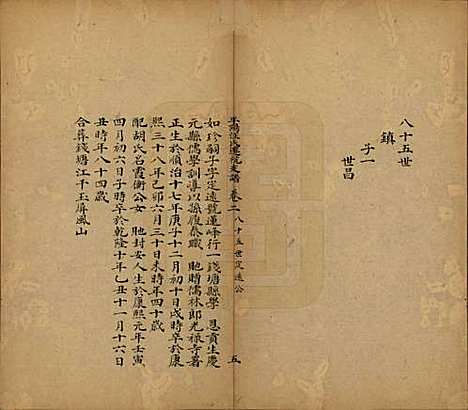 八十五世
鎮
子一
世昌
平陽汪氏遷杭支譜 卷二 八十五世定遠公 五
如珍嗣子字定遠號蓮峰行一錢塘縣學 恩貢生慶
元縣儒學訓導以孫復泰職 貤贈儒林郎光祿寺署
正生於順治十七年庚子十二月初十日戌時卒於康
熙三十八年己卯六月三十日未時年四十歲
配胡氏名霞衡公女 貤封安人生於康熙元年壬寅
四月初六日子時卒於乾隆十年乙丑十一月十六日
丑時年八十四歲
合葬錢塘江干玉屏風山